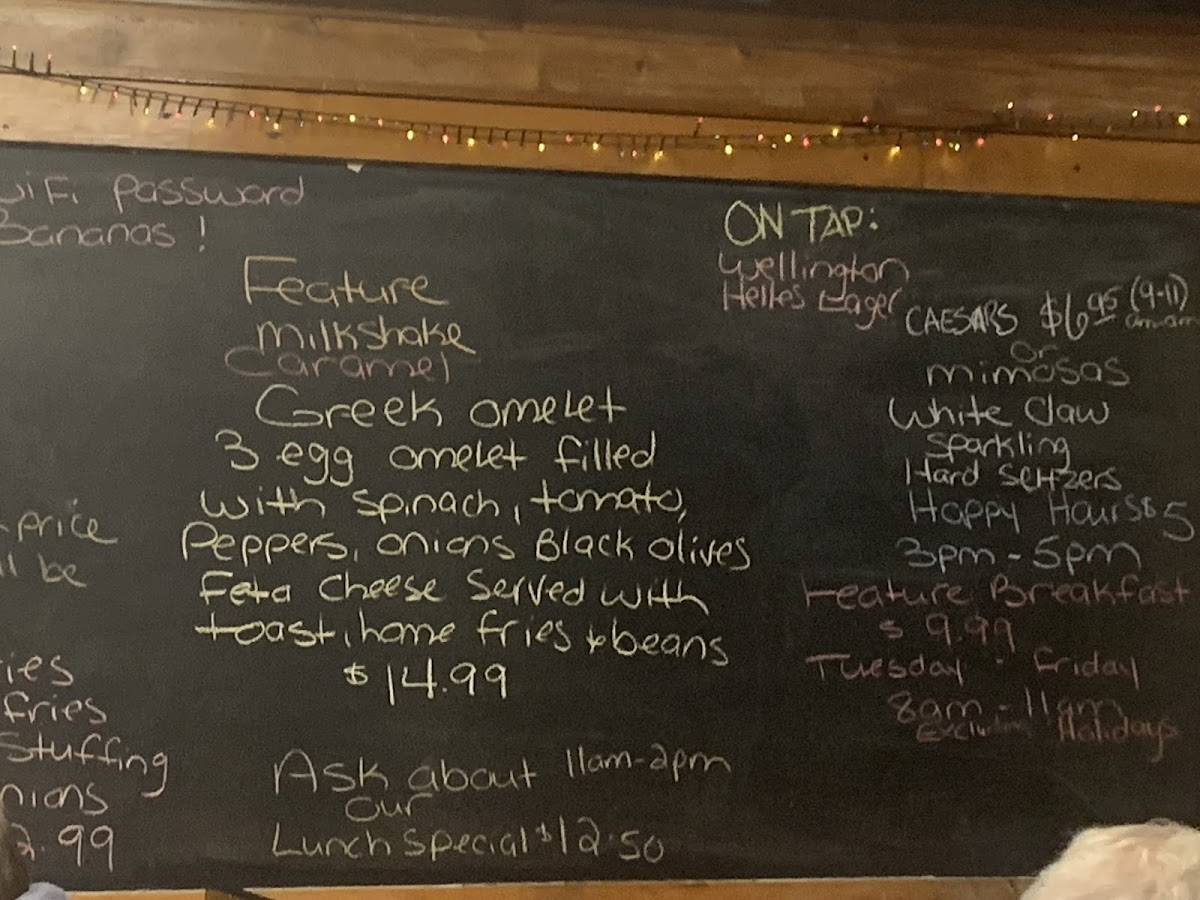 WiFi Password
Bananas!
Feature
milkshake
Caramel
Greek omelet
3 egg omelet filled
with spinach, tomato,
Peppers, onions Black olives
Feta cheese served with
toast, home fries & beans
$14.99
Ask about 11am-2pm
our
Lunch special $12.50
price
be
fries
Stuffing
2.99
ON TAP:
Wellington
Helles Lager
CAESARS $6.95 (9-11)
or
mimosas
White Claw
Sparkling
Hard Seltzers
Happy Hour $5
3pm-5pm
Feature Breakfast
$9.99
Tuesday - Friday
8am-11am
Excluding Holidays